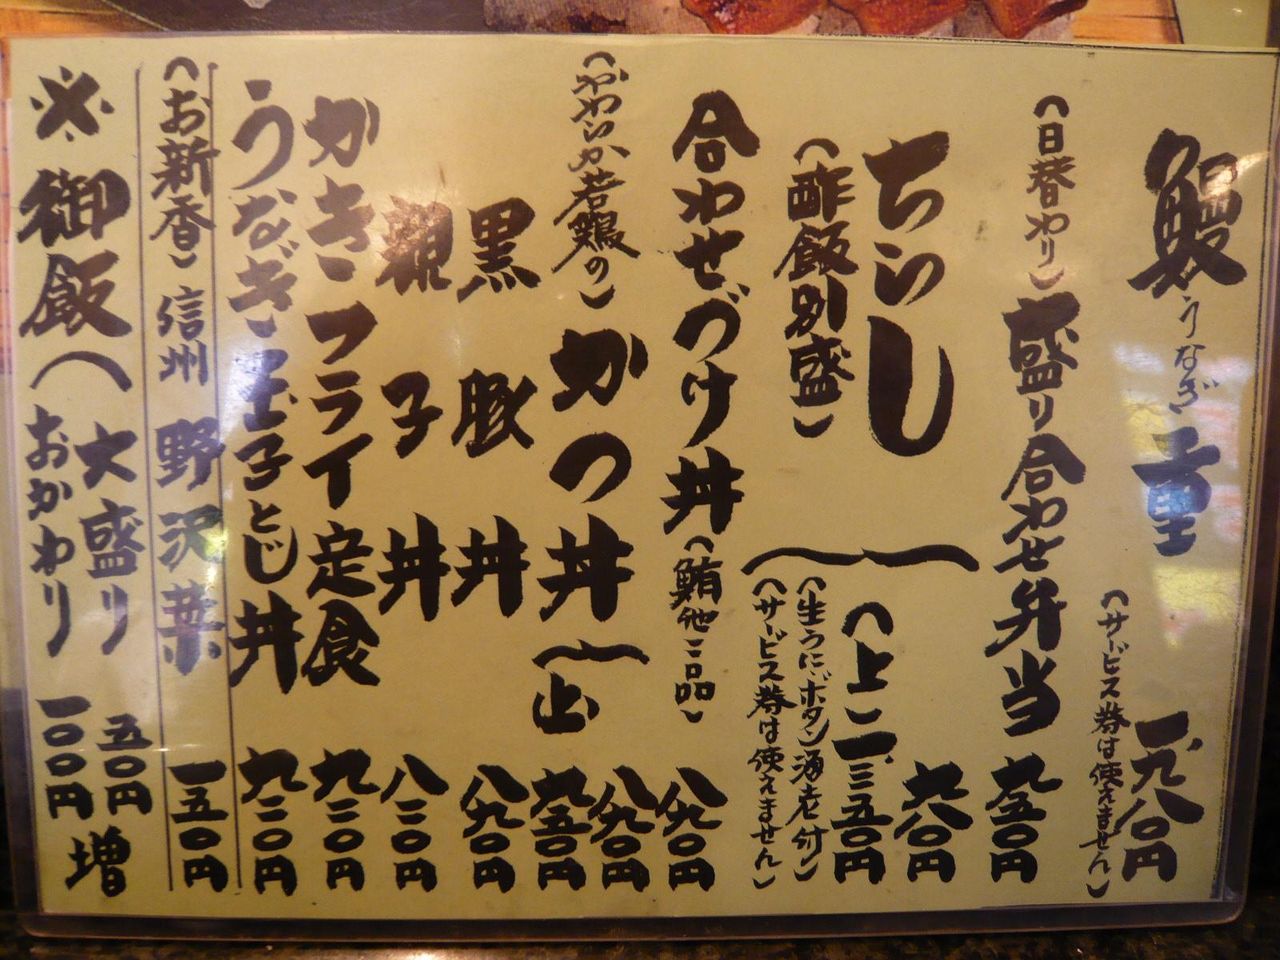 鰻うなぎ重 一、九八〇円
(サービス券は使えません)
(日替わり)盛り合わせ弁当 九五〇円
ちらし 九八〇円
(上)一、三五〇円
(酢飯別盛)
(生うに、ボタン湯老付)
(サービス券は使えません)
合わせづけ丼(鮪他二品) 八九〇円
(やわらか若鶏の)かつ丼 八九〇円
(上) 九五〇円
黒豚丼 八九〇円
親子丼 八三〇円
かきフライ定食 九三〇円
うなぎ玉子とじ丼 九三〇円
(お新香)信州野沢菜 一五〇円
※御飯 大盛り 五〇円
おかわり 一〇〇円 増